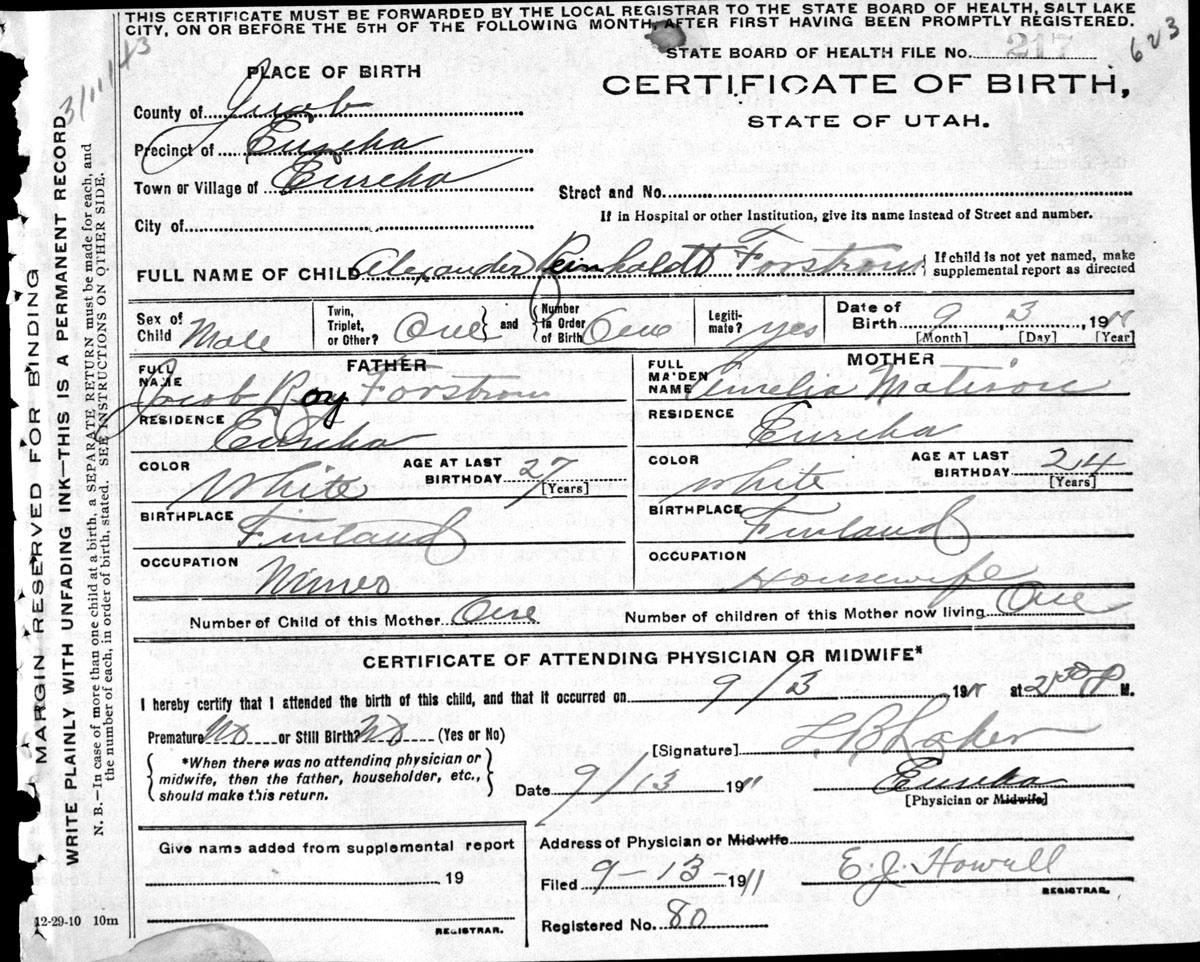 THIS CERTIFICATE MUST BE FORWARDED BY THE LOCAL REGISTRAR TO THE STATE BOARD OF HEALTH, SALT LAKE
CITY, ON OR BEFORE THE 5TH OF THE FOLLOWING MONTH, AFTER FIRST HAVING BEEN PROMPTLY REGISTERED.
STATE BOARD OF HEALTH FILE No. 217
623
3/11/43
PLACE OF BIRTH
CERTIFICATE OF BIRTH,
STATE OF UTAH.
County of Juab
Precinct of Eureka
Town or Village of Eureka
Street and No.
If in Hospital or other Institution, give its name instead of Street and number.
City of
FULL NAME OF CHILD Alexander Reinholdt Forstrom
If child is not yet named, make
supplemental report as directed
Sex of
Child Male
Twin,
Triplet,
or Other? One
and
Number
in Order
of Birth One
Legiti-
mate? yes
Date of
Birth 9, 3, 1911
[Month] [Day] [Year]
FATHER
FULL
NAME Jacob Roy Forstrom
MOTHER
FULL
MAIDEN
NAME Amelia
RESIDENCE Eureka
RESIDENCE Eureka
COLOR White
AGE AT LAST
BIRTHDAY 27
[Years]
COLOR White
AGE AT LAST
BIRTHDAY 24
[Years]
BIRTHPLACE Finland
BIRTHPLACE Finland
OCCUPATION Miner
OCCUPATION Housewife
Number of Child of this Mother One
Number of children of this Mother now living One
CERTIFICATE OF ATTENDING PHYSICIAN OR MIDWIFE*
I hereby certify that I attended the birth of this child, and that it occurred on 9/3 1911 at 2:00 P M.
Premature No or Still Birth? No (Yes or No)
*When there was no attending physician or
midwife, then the father, householder, etc.,
should make this return.
[Signature]
Date 9/13 1911
Eureka
[Physician or Midwife]
Give name added from supplemental report
19
REGISTRAR.
Address of Physician or Midwife
Filed 9-13- 1911
E. J. Howell
REGISTRAR.
Registered No. 80
12-29-10 10m
MARGIN RESERVED FOR BINDING
WRITE PLAINLY WITH UNFADING INK—THIS IS A PERMANENT RECORD
N. B.—In case of more than one child at a birth, a SEPARATE RETURN must be made for each, and
the number of each, in order of birth, stated. SEE INSTRUCTIONS ON OTHER SIDE.